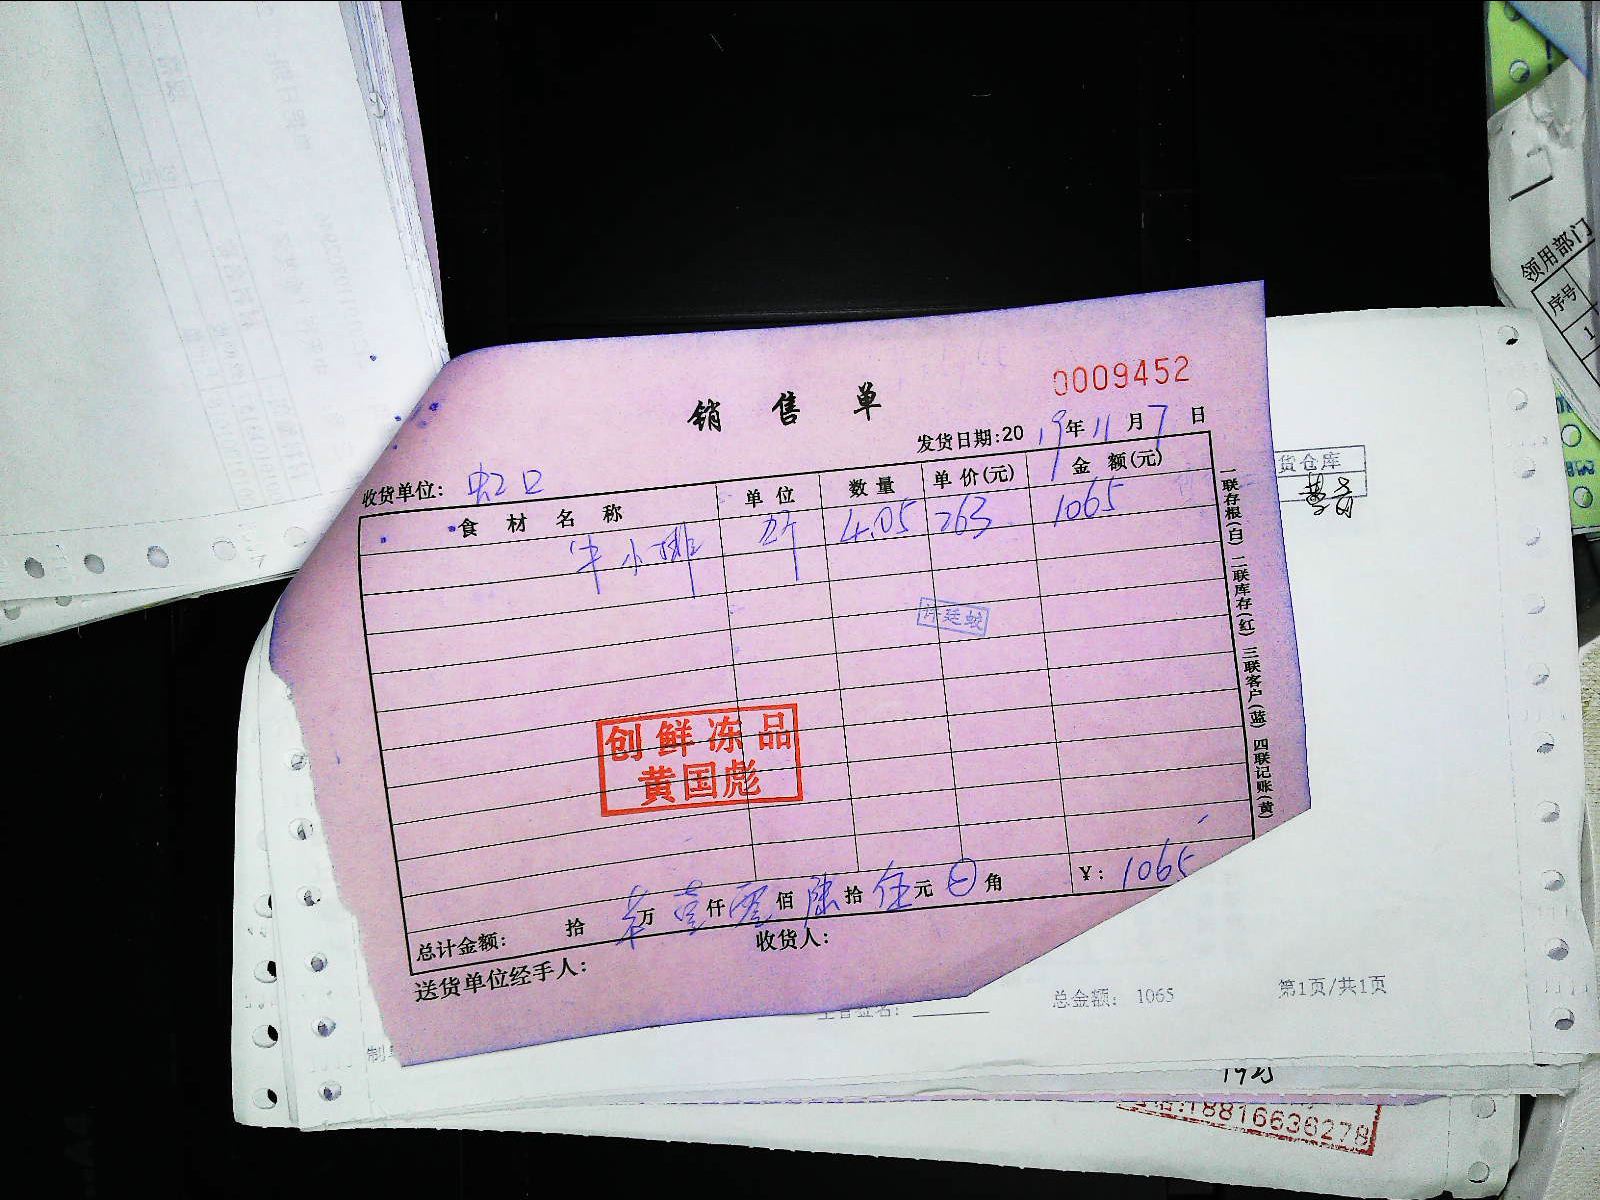 0009452
销售单
发货日期:2019年11月7日
收货单位: 虹口
食材名称 单位 数量 单价(元) 金额(元)
牛小排 斤 4.05 263 1065
许廷蛟
创鲜冻品
黄国彪
总计金额: 拾 万 壹仟 零佰 陆拾 伍元 角 ¥: 1065
送货单位经手人: 收货人:
一联存根(白) 二联库存(红) 三联客户(蓝) 四联记账(黄)
货仓库
总金额: 1065 第1页/共1页
:18816636278
领用部门
序号
1